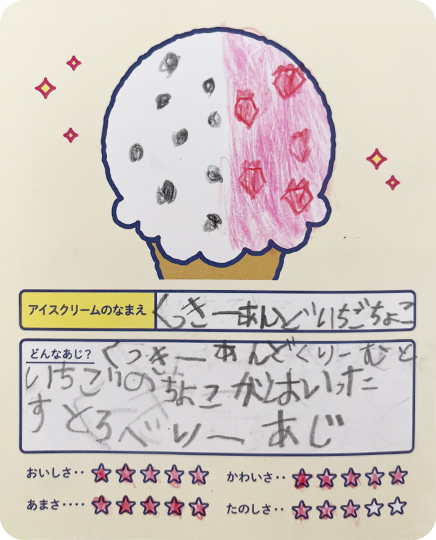 アイスクリームのなまえ
くっきーあんどいちごちょこ
どんなあじ？
くっきーあんどくりーむと
いちごのちょこがはいった
すとろべりーあじ
おいしさ‥
かわいさ‥
あまさ‥‥
たのしさ‥